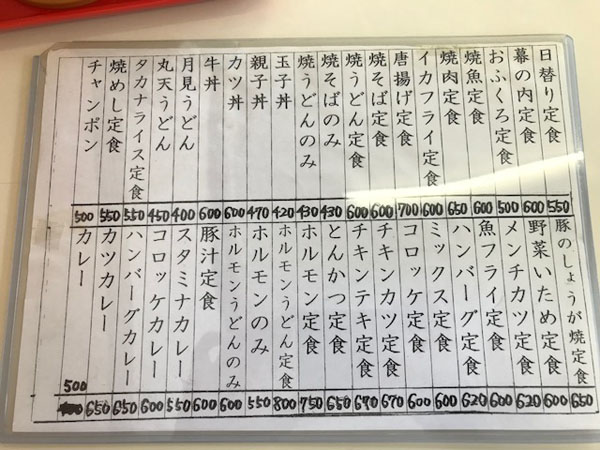 日替り定食 550
幕の内定食 600
おふくろ定食 500
焼魚定食 600
焼肉定食 650
イカフライ定食 600
唐揚げ定食 700
焼そば定食 600
焼うどん定食 600
焼そばのみ 430
焼うどんのみ 430
玉子丼 420
親子丼 470
カツ丼 600
牛丼 600
月見うどん 400
丸天うどん 450
タカナライス定食 550
焼めし定食 550
チャンポン 500
豚のしょうが焼定食 650
野菜いため定食 600
メンチカツ定食 620
魚フライ定食 600
ハンバーグ定食 620
ミックス定食 600
コロッケ定食 600
チキンカツ定食 670
チキンテキ定食 670
とんかつ定食 650
ホルモン定食 750
ホルモンうどん定食 800
ホルモンのみ 550
ホルモンうどんのみ 600
豚汁定食 600
スタミナカレー 550
コロッケカレー 600
ハンバーグカレー 650
カツカレー 650
カレー 500